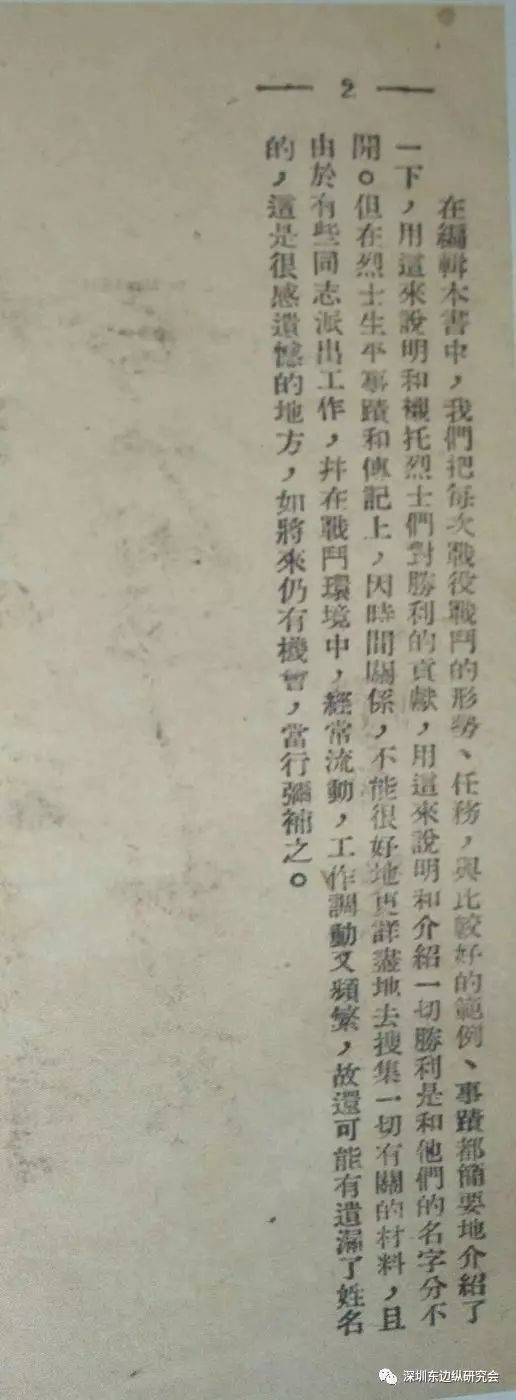 — 2 —
在編輯本書中，我們把每次戰役戰鬥的形勢、任務，與比較好的範例、事蹟都簡要地介紹了
一下，用這來說明和襯托烈士們對勝利的貢獻，用這來說明和介紹一切勝利是和他們的名字分不
開。但在烈士生平事蹟和傳記上，因時間關係，不能很好地更詳盡地去搜集一切有關的材料，且
由於有些同志派出工作，幷在戰鬥環境中，經常流動，工作調動又頻繁，故還可能有遺漏了姓名
的，這是很感遺憾的地方，如將來仍有機會，當行彌補之。
深圳东边纵研究会